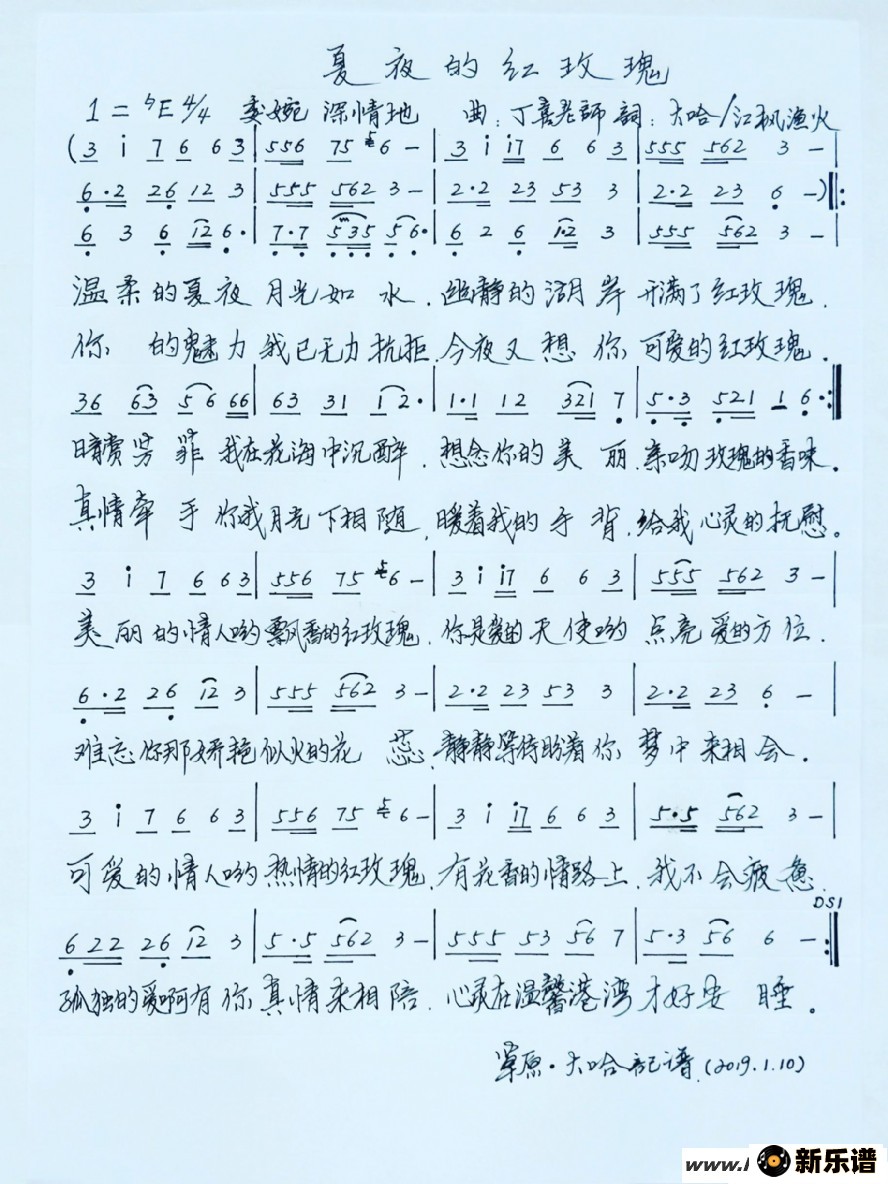 夏夜的红玫瑰
1=♭E 4/4 委婉 深情地 曲:丁喜老師 詞:大哈/江枫渔火
(3 i 7 6 6 3 | 556 75 6 - | 3 i i7 6 6 3 | 555 562 3 - |
6·2 26 12 3 | 555 562 3 - | 2·2 23 53 3 | 2·2 23 6 -)‖:
6 3 6 12 6· | 7·7 535 56· | 6 2 6 1·2 3 | 555 562 3 - |
温柔的夏夜月光如水,幽静的湖岸开满了红玫瑰.
你 的魅力我已无力抗拒,今夜又想你,可爱的红玫瑰.
36 63 56 66 | 63 31 12· | 1·1 12 321 7 | 5·3 521 1 6·:‖
暗赏芳菲我在花海中沉醉,想念你的美丽,亲吻玫瑰的香味。
真情牵手你我月光下相随,暖着我的手背,给我心灵的抚慰。
3 i 7 6 63 | 556 75 56 - | 3 i i7 6 6 3 | 555 562 3 - |
美丽的情人哟飘香的红玫瑰,你是爱的天使哟点亮爱的方位.
6·2 26 12 3 | 555 562 3 - | 2·2 23 53 3 | 2·2 23 6 - |
难忘你那娇艳似火的花蕊,静静等待盼着你梦中来相会.
3 i 7 6 6 3 | 556 75 56 - | 3 i i7 6 6 3 | 5·5 562 3 - |
可爱的情人哟热情的红玫瑰,有花香的情路上,我不会疲惫.
DS1
622 26 12 3 | 5·5 562 3 - | 555 53 56 7 | 5·3 56 6 - :‖
孤独的爱啊有你真情来相陪.心灵在温馨港湾才好安睡。
草原·大哈記谱.(2019.1.10)
www.
新乐谱